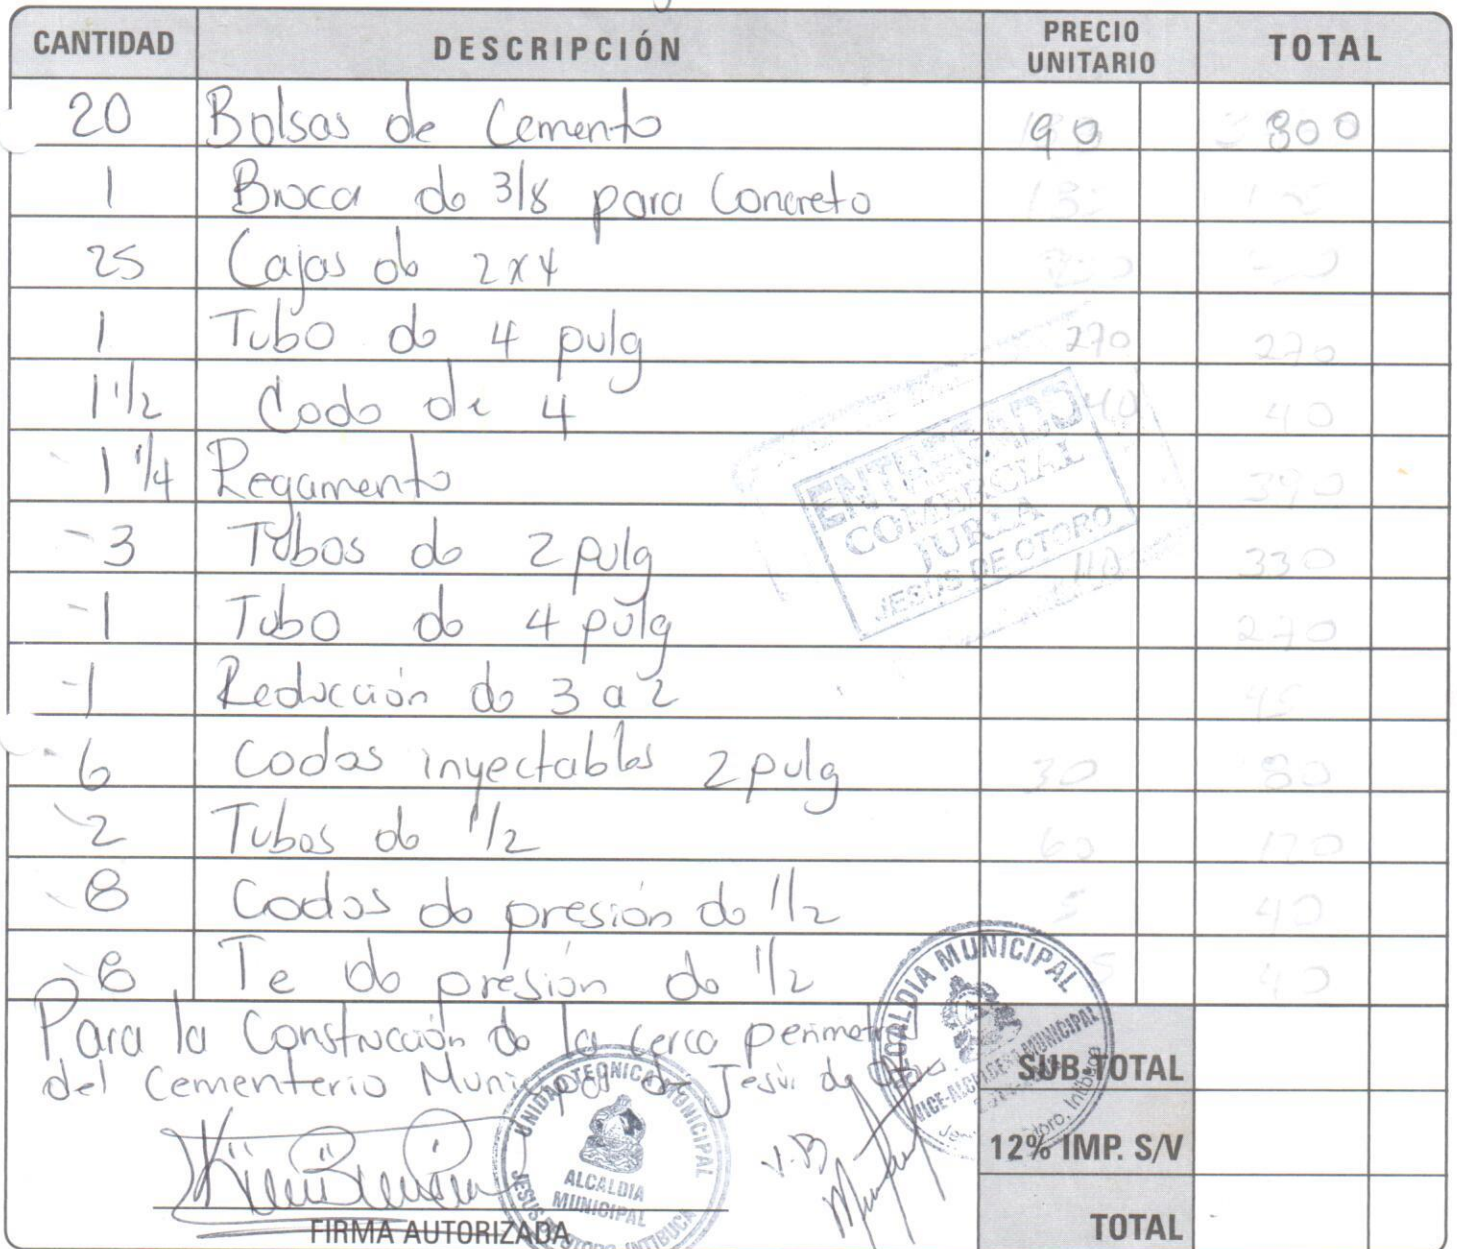 CANTIDAD DESCRIPCIÓN PRECIO UNITARIO TOTAL
20 Bolsas de Cemento 90 800
1 Broca de 3/8 para Concreto
25 Cajas de 2x4
1 Tubo de 4 pulg 270 270
1 1/2 Codo de 4 40 40
1 1/4 Pegamento 390
3 Tubos de 2 pulg 110 330
1 Tubo de 4 pulg 270
1 Reducción de 3 a 2 45
6 Codos inyectables 2 pulg 30 80
2 Tubos de 1/2 60 120
8 Codos de presión de 1/2 5 40
8 Te de presión de 1/2 5 40
ENTREGADO
COMERCIAL
JURLA
JESUS DE OTORO
Para la Construcción de la cerca perimetral
del Cementerio Municipal de Jesús de Otoro
SUB-TOTAL
12% IMP. S/V
TOTAL
FIRMA AUTORIZADA
UNIDAD TECNICA MUNICIPAL
ALCALDIA
MUNICIPAL
JESUS DE OTORO, INTIBUCA
ALCALDIA MUNICIPAL
VICE-ALCALDE MUNICIPAL
V.B